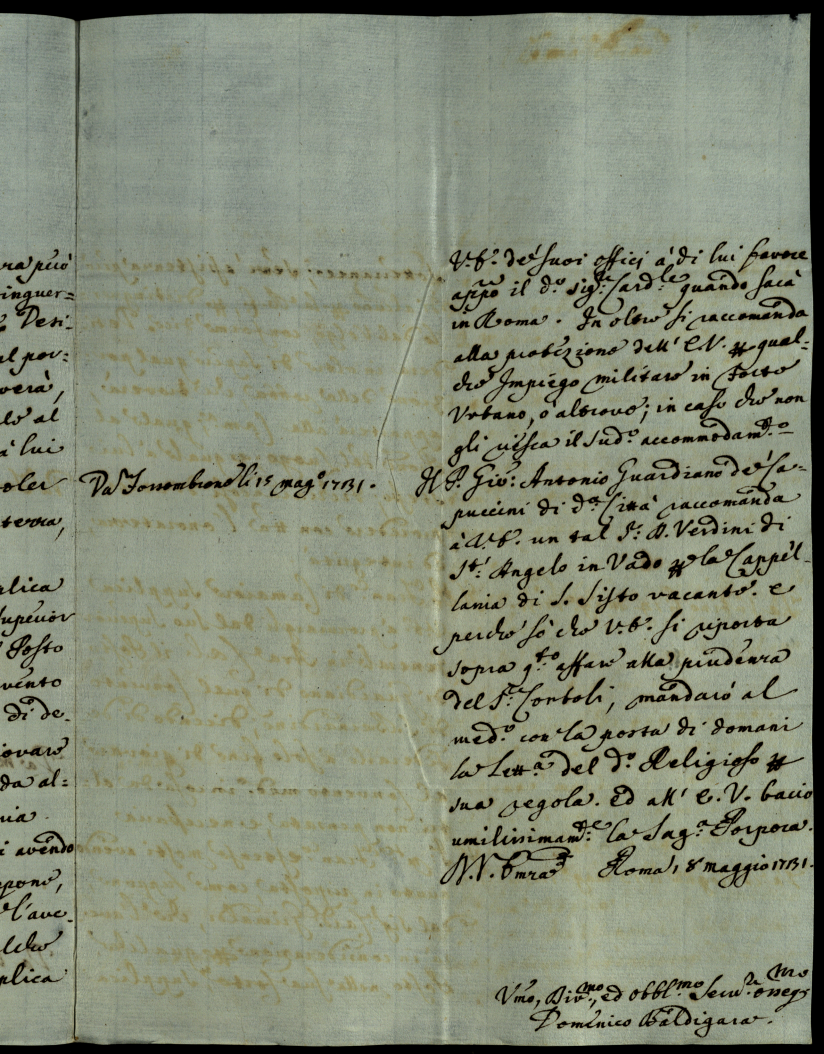 ra può
tinguer=
Desi=
al por=
verà,
le al
à lui
oler
terra,
plica
Superior
Posto
vento
di de-
iovare
da al=
ria.
i avendo
ppone,
l'ave-
lche
plica
Da Fossombrone li 15 mag.o 1731.
V.E. de' suoi officj à di lui favore
appo il d.o Sig.r Card.le quando sarà
in Roma. In oltre si raccomanda
alla protezione dell' E.V. qual-
che Impiego militare in Forte
Urbano, o' altrove; in caso che non
gli riesca il sud.o accommodam.to
Il P. Gio: Antonio Guardiano de' Ca-
puccini di d.a Città raccomanda
à V.E. un tal S.r D. Verdini di
S.t Angelo in Vado la Cappel-
lania di S. Sisto vacante. e
perche sò che V.E. si riporta
sopra q.to affare alla prudenza
del S.r Contoli, mandarò al
med.o con la posta di domani
la Lett.a del d.o Religioso
sua regola. Ed all' E.V. bacio
umilissimam.te la Sag.a Porpora.
D.V. Emza Roma, 8 maggio 1731.
Vmo, Div.mo, ed obbl.mo Serv.re osseq.mo
Domenico Baldigara.